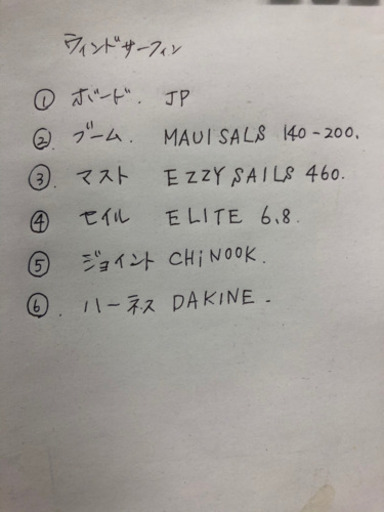 ウィンドサーフィン
① ボード. JP
② ブーム. MAUISALS 140-200.
③. マスト EZZY SAILS 460.
④ セイル ELITE 6.8.
⑤ ジョイント CHiNOOK.
⑥. ハーネス DAKINE.